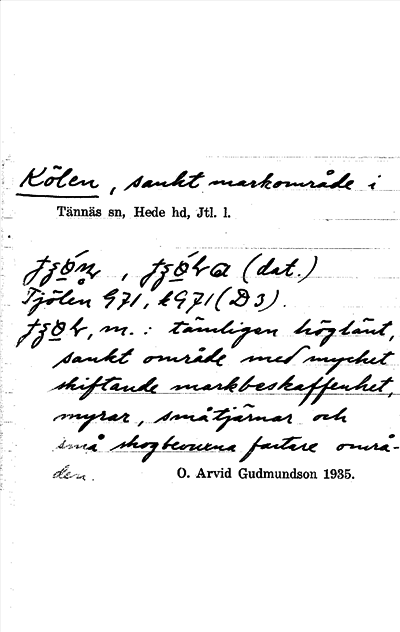 Kölen, sankt markområde i
Tännäs sn, Hede hd, Jtl. l.
(dat.)
Tjölen G71, kG71 (D3).
m.: tämligen höglänt,
sankt område med mycket
skiftande markbeskaffenhet,
myrar, småtjärnar och
små skogbevuxna fastare områ-
den. O. Arvid Gudmundson 1935.